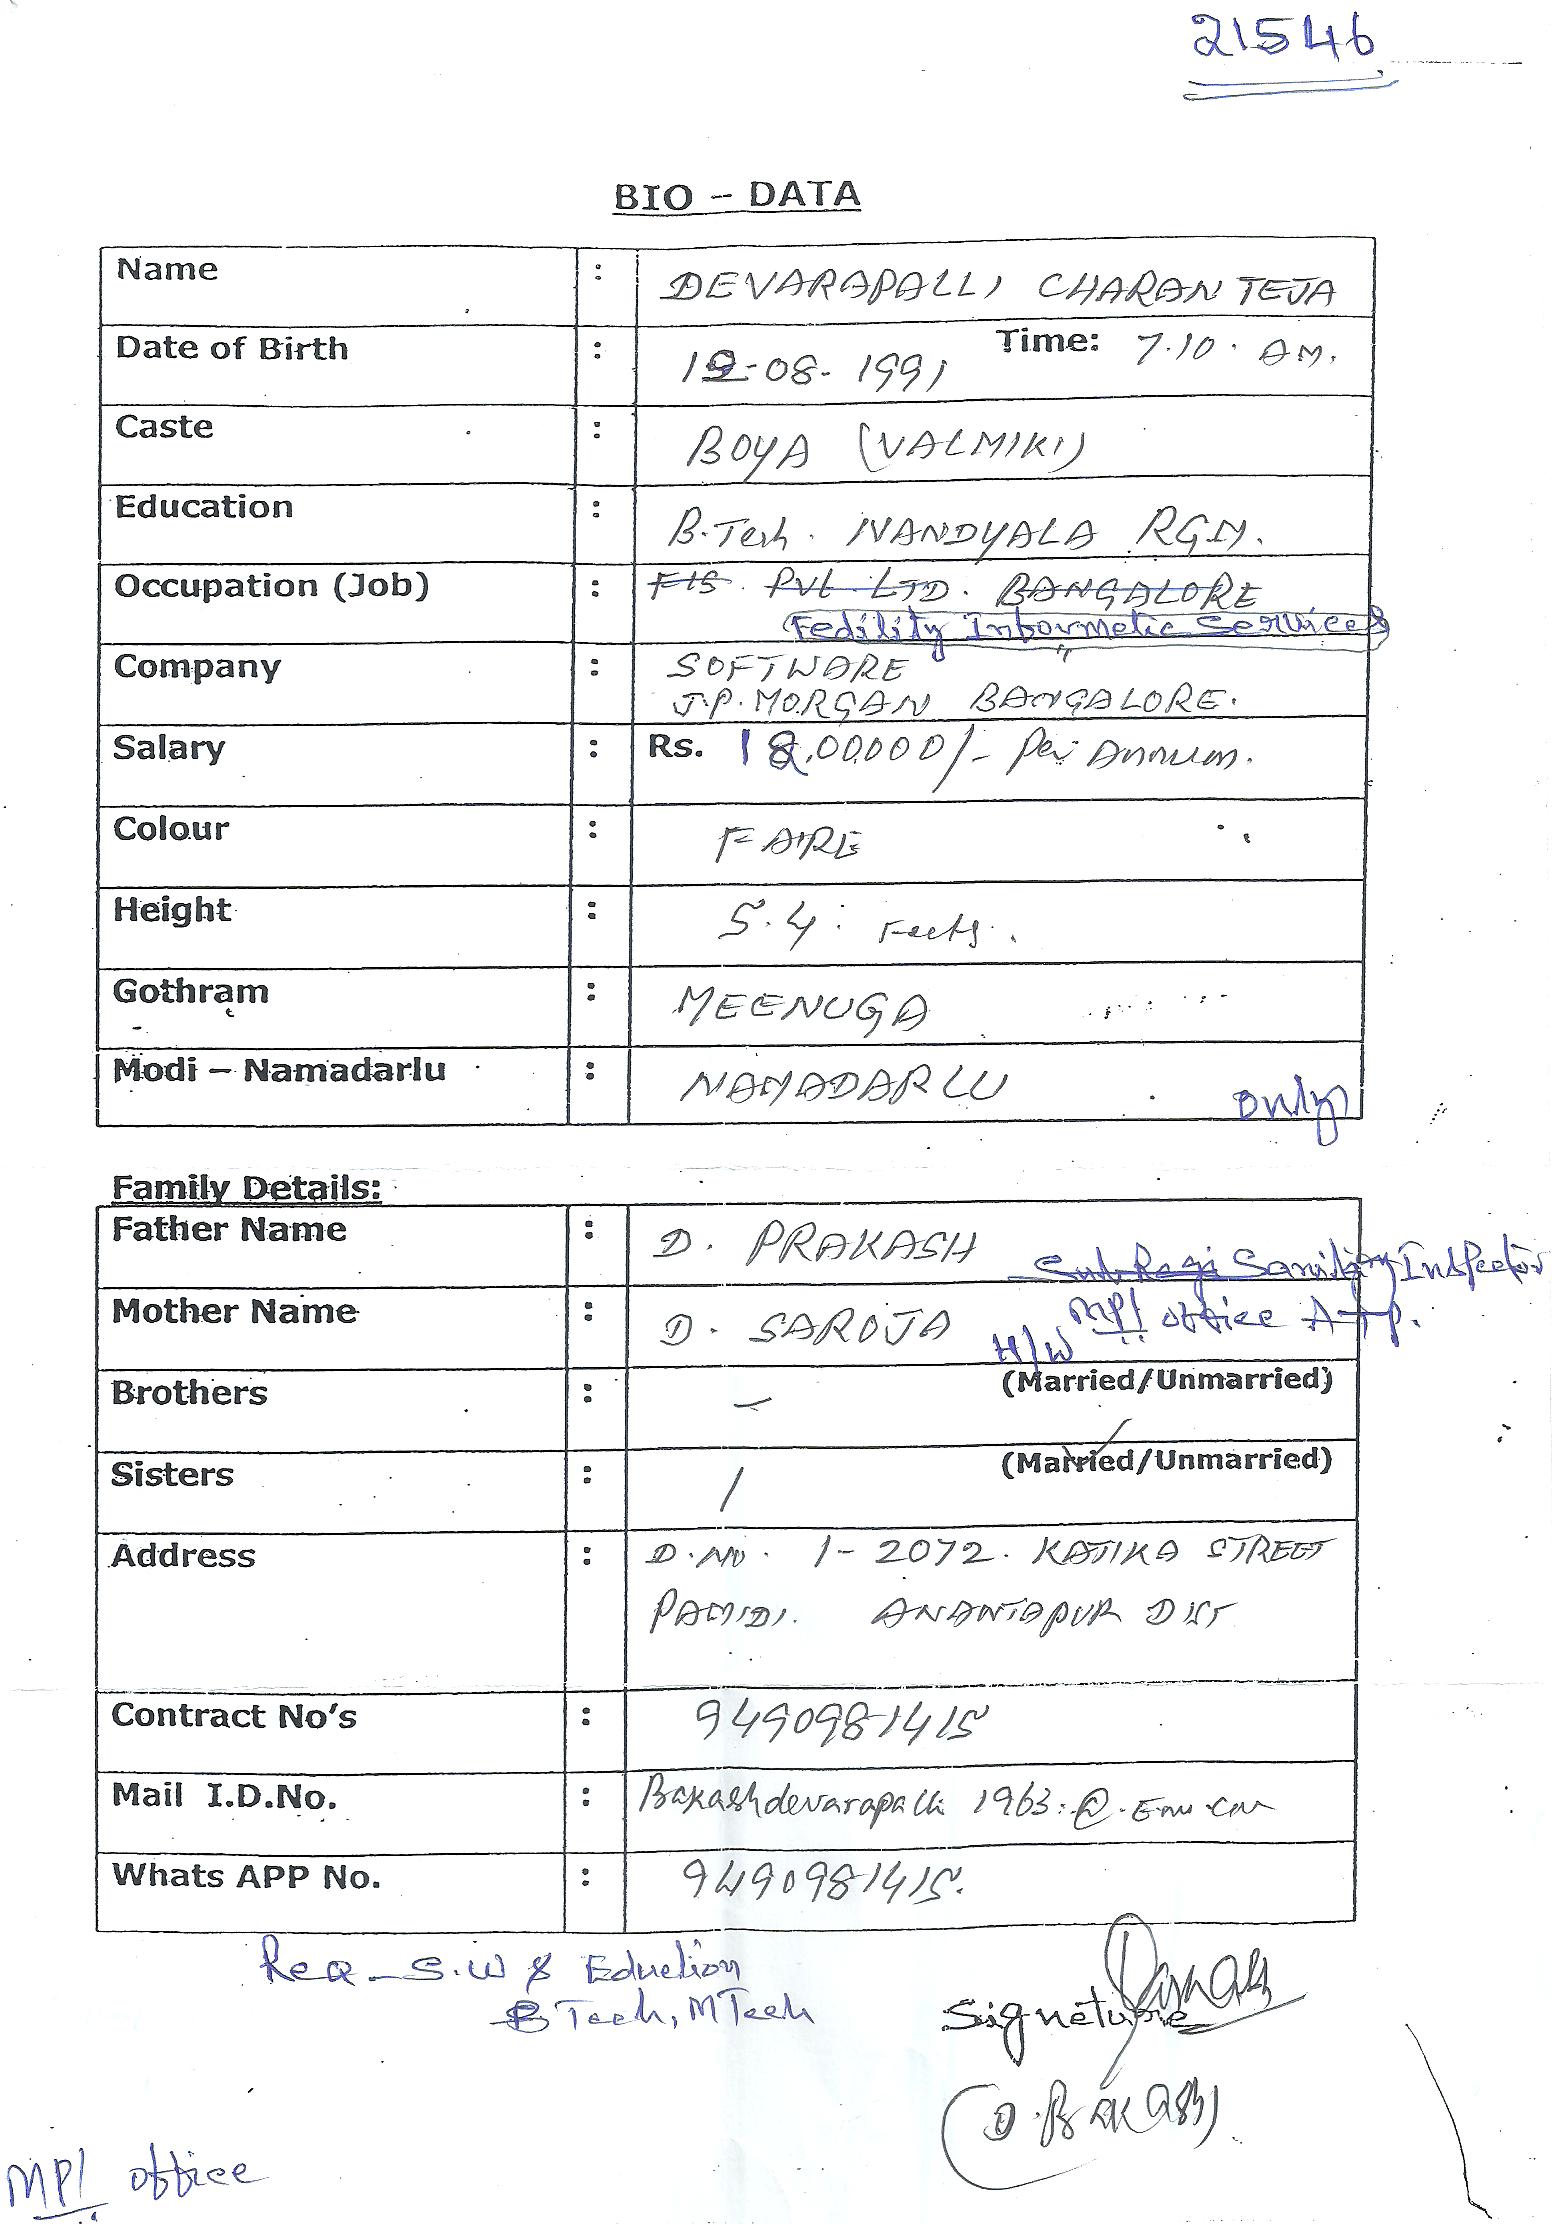 21546
BIO – DATA
Name : DEVARAPALLI CHARAN TEJA
Date of Birth : 19-08-1991 Time: 7.10. AM.
Caste : BOYA (VALMIKI)
Education : B.Tech. NANDYALA RGM.
Occupation (Job) : FIS. PVt LTD. BANGALORE
Fedility Informetic Services
Company : SOFTWARE
J.P. MORGAN BANGALORE.
Salary : Rs. 18,00000/- Per Annum.
Colour : FAIRE
Height : 5.4. Feets.
Gothram : MEENUGA
Modi – Namadarlu : NAMADARLU only
Family Details:
Father Name : D. PRAKASH Sanitary Inspector
Mother Name : D. SAROJA H/W MPl office ATP.
Brothers : – (Married/Unmarried)
Sisters : 1 (Married/Unmarried)
Address : D.NO. 1-2072. KATIKA STREET
PAMIDI. ANANTAPUR DIST
Contract No's : 9490981415
Mail I.D.No. : Prakashdevarapalli 1963.@.
Whats APP No. : 9490981415.
Req - S.W & Eduction
B Tech, M Tech
Signeture
(D. PRAKASH)
MPl office